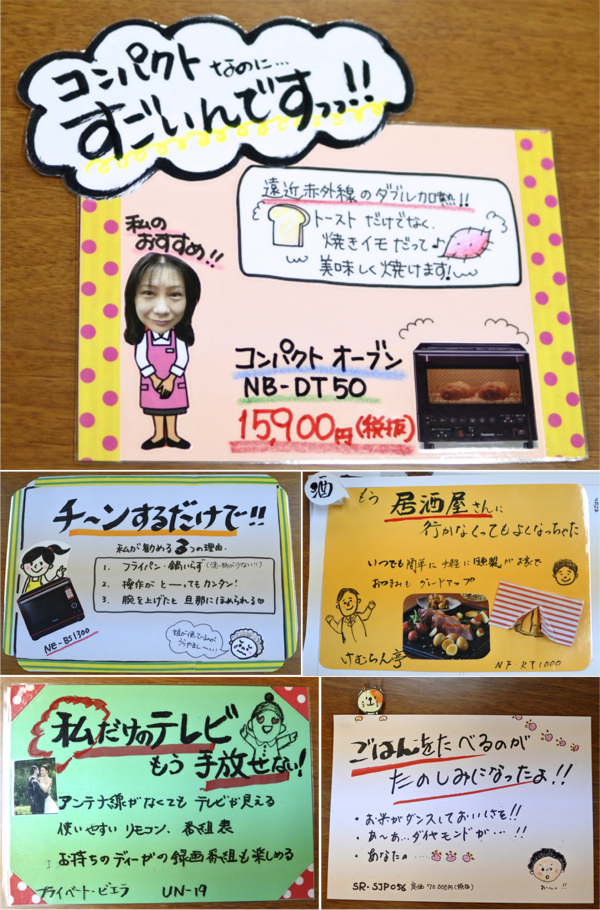 コンパクト なのに…
すごいんですっっ!!
遠近赤外線のダブル加熱!!
トーストだけでなく、
焼きイモだって♪
美味しく焼けます!
私の
おすすめ!!
コンパクト オーブン
NB-DT50
15,900円(税抜)
チ〜ンするだけで!!
私が勧める3つの理由。
1. フライパン・鍋いらず(洗い物が少ない!!)
2. 操作がとーってもカンタン!
3. 腕を上げたと旦那にほめられる♡
NE-BS1300
酒
もう 居酒屋さんに
行かなくってもよくなっちゃた
いつでも簡単に手軽に燻製がお家で
おつまみもグレードアップ
けむらん亭
NF-RT1000
私だけのテレビ
もう手放せない!
アンテナ線がなくてもテレビが見える
使いやすいリモコン、番組表
お持ちのディーガの録画番組も楽しめる
プライベート・ビエラ UN-19
ごはんをたべるのが
たのしみになったよ!!
・お米がダンスしておいしさを!!
・あ〜あ…ダイヤモンドが…!!
・あなたの…
SR-SJP056 定価 70,000円(税抜)